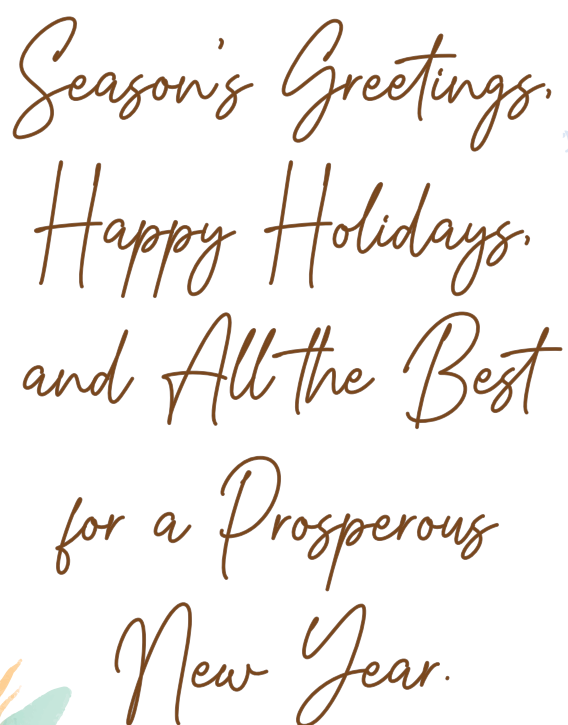 Season's Greetings,
Happy Holidays,
and All the Best
for a Prosperous
New Year.